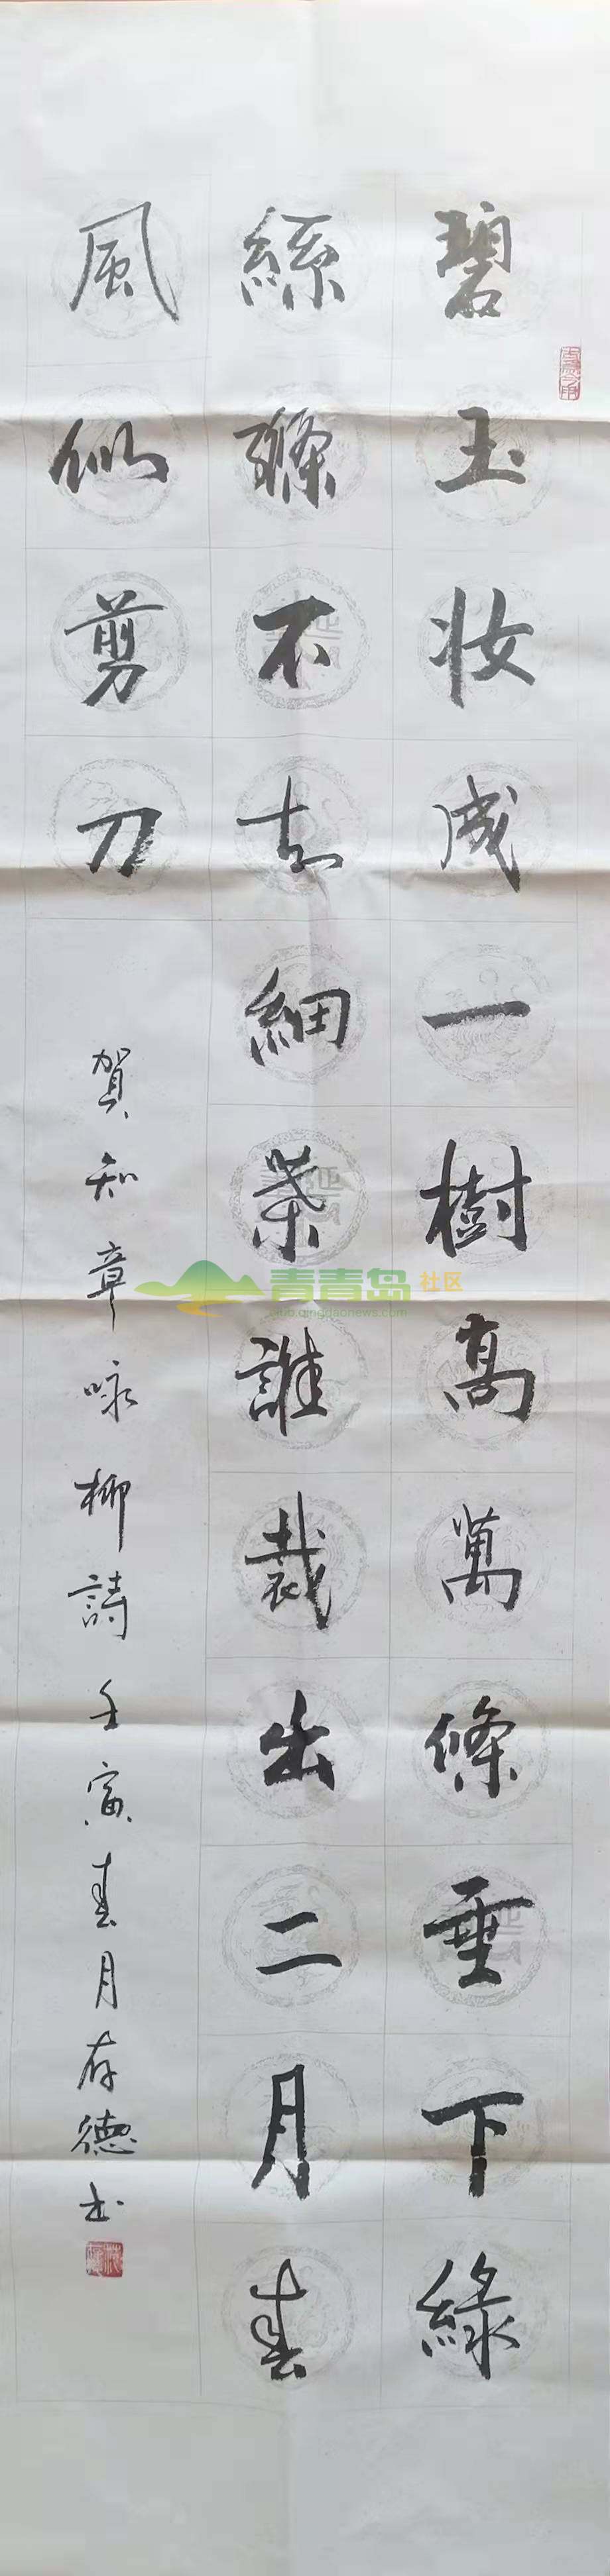 碧玉妆成一樹高萬條垂下綠
絲縧不知細葉誰裁出二月春
風似剪刀
賀知章咏柳詩壬寅春月存德书
青青岛社区
club.qingdaonews.com